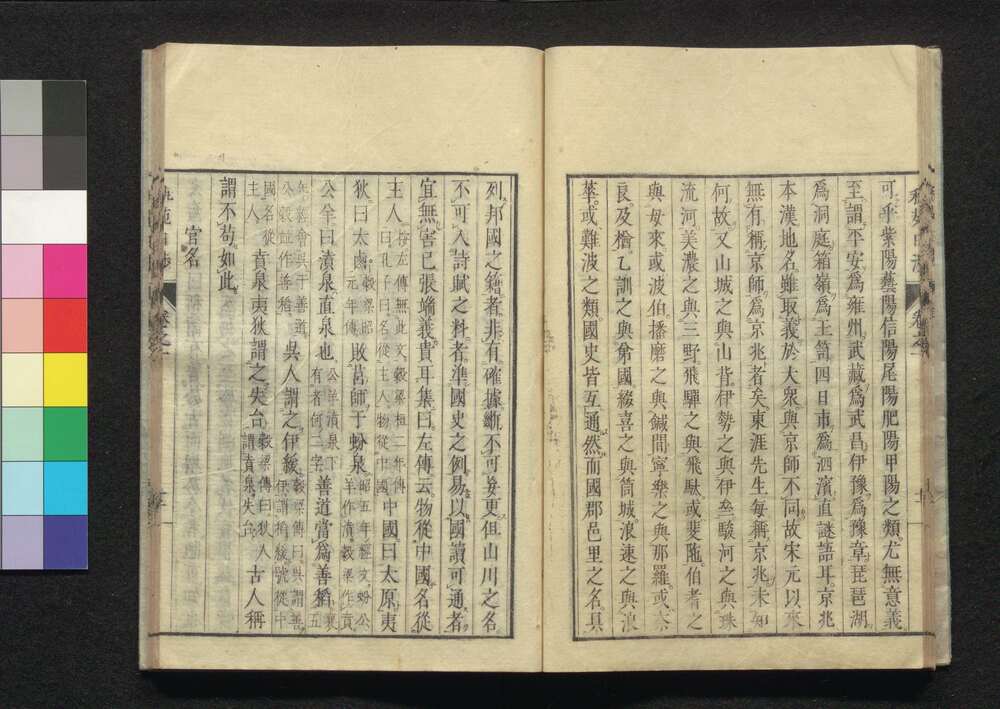 可乎紫陽藝陽信陽尾陽肥陽甲陽之類尤無意義
至謂平安爲雍州武藏爲武昌伊豫爲豫章琵琶湖
爲洞庭箱嶺爲王笥四日市爲泗濱直謎語耳京兆
本漢地名雖取義於大衆與京師不同故宋元以來
無有稱京師爲京兆者矣東涯先生每稱京兆未知
何故又山城之與山背伊勢之與伊叁駿河之與珠
流河美濃之與三野飛驒之與飛駄或斐陁伯耆之
與母來或波伯播磨之與鍼間寧樂之與那羅或奈
良及檜乙訓之與弟國綴喜之與筒城浪速之與浪
華或難波之類國史皆互通然而國郡邑里之名具
列邦國之籍者非有確據斷不可妄更但山川之名
不可入詩賦之料者準國史之例易以國讀可通者
宜無害已張端義貴耳集曰左傳云物從中國名從
主人按左傳無此文穀梁桓二年傳曰孔子曰名從主人物從中國中國曰太原夷
狄曰太鹵穀梁昭元年傳敗莒師于蚡泉昭五年經文蚡公羊作濆穀梁作賁
公羊曰濆泉直泉也公羊濆泉下有者何二字善道當爲善稻襄五
年會吳于善道公穀並作善稻吳人謂之伊緩穀梁傳曰吳謂善伊謂稻緩號從中
國名從主人賁泉夷狄謂之失台穀梁傳曰狄人謂賁泉失台古人稱
謂不苟如此
官名